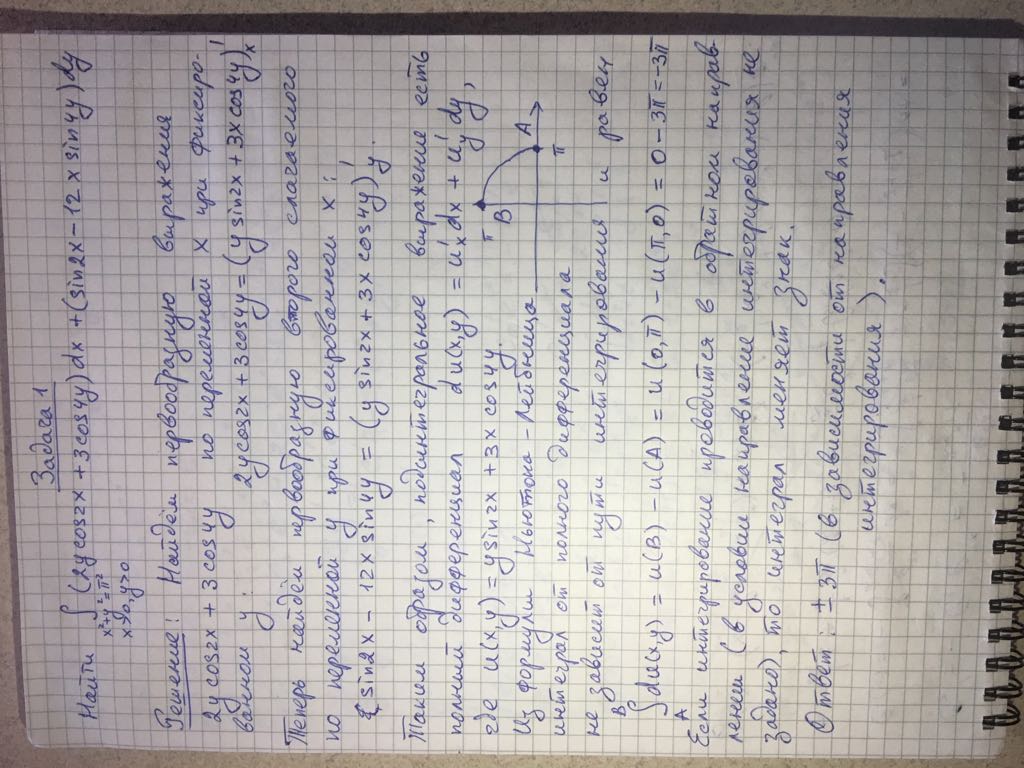 Задача 1
Найти ∫ (2y cos2x + 3cos4y) dx + (sin2x - 12x sin4y) dy
x²+y²=π²
x>0, y>0
Решение: Найдём первообразную выражения
2y cos2x + 3cos4y по переменной x при фиксиро-
ванном y: 2y cos2x + 3cos4y = (y sin2x + 3x cos4y)'x
Теперь найдём первообразную второго слагаемого
по переменной y при фиксированном x:
sin2x - 12x sin4y = (y sin2x + 3x cos4y)'y.
Таким образом, подинтегральное выражение есть
полный дифференциал du(x,y) = u'x dx + u'y dy,
где u(x,y) = y sin2x + 3x cos4y.
Из формулы Ньютона-Лейбница
интеграл от полного дифференциала
не зависит от пути интегрирования и равен
π
B
A
π
B
∫ du(x,y) = u(B) - u(A) = u(0,π) - u(π,0) = 0 - 3π = -3π
A
Если интегрирование проводится в обратном направ-
лении (в условии направление интегрирования не
задано), то интеграл меняет знак.
Ответ: ± 3π (в зависимости от направления
интегрирования).